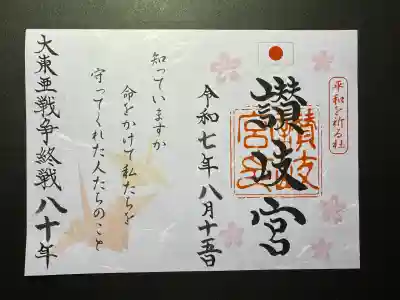 平和を祈る社
讃岐宮
讃岐
宮
令和七年八月十五日
知っていますか
命をかけて私たちを
守ってくれた人たちのこと
大東亜戦争終戦八十年